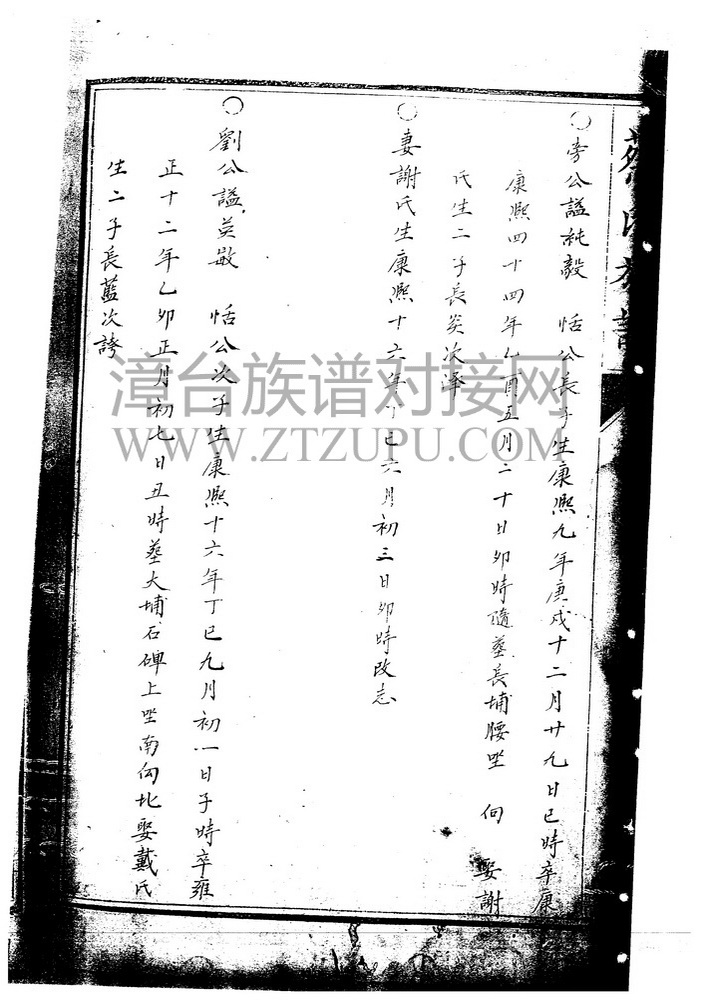 ○旁公諡純毅 恬公長子生康熙九年庚戍十二月廿九日巳時卒康
康熙四十四年乙酉五月二十日卯時隨塟長埔腰坐 向 娶謝
氏生二子長炎次澤
○妻謝氏生康熙十六年丁巳六月初三日卯時改志
○劉公諡英敏 恬公次子生康熙十六年丁巳九月初一日子時卒雍
正十二年乙卯正月初七日丑時塟大埔石碑上坐南向北娶戴氏
生二子長藍次誇
漳台族谱对接网
WWW.ZTZUPU.COM